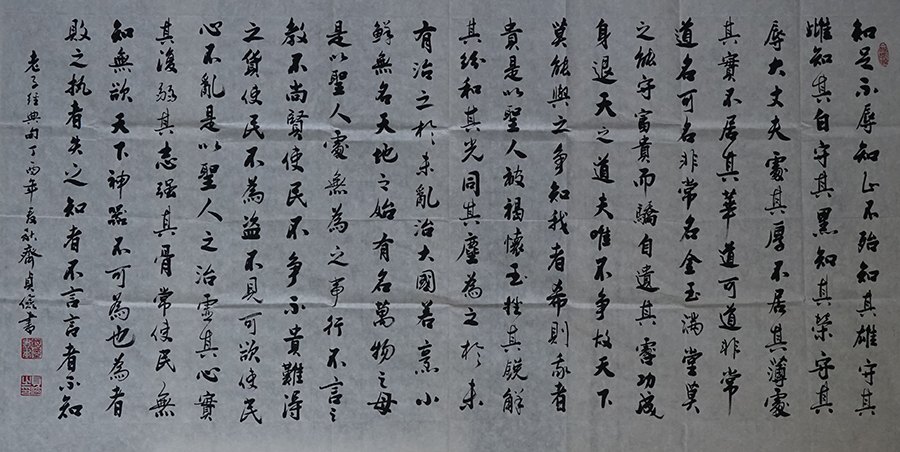 知足不辱知止不殆知其雄守其
雌知其白守其黑知其榮守其
辱大丈夫處其厚不居其薄處
其實不居其華道可道非常
道名可名非常名金玉滿堂莫
之能守富貴而驕自遺其咎功成
身退天之道夫唯不争故天下
莫能與之争知我者希則我者
貴是以聖人被褐懷玉挫其銳解
其紛和其光同其塵為之於未
有治之於未亂治大國若烹小
鮮無名天地之始有名萬物之母
是以聖人處無為之事行不言之
教不尚賢使民不争不貴難得
之貨使民不為盗不見可欲使民
心不亂是以聖人之治虛其心實
其腹弱其志强其骨常使民無
知無欲天下神器不可為也為者
敗之執者失之知者不言言者不知
老子經典句丁酉年孟秋齊貞書